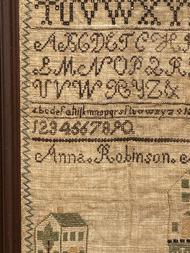 TUVWXY
ABCDEFGH
LMNOPQR
UVWXYZ&
abcdefghijklmnopqrstuvwxyz
1234667890
Anna Robinson